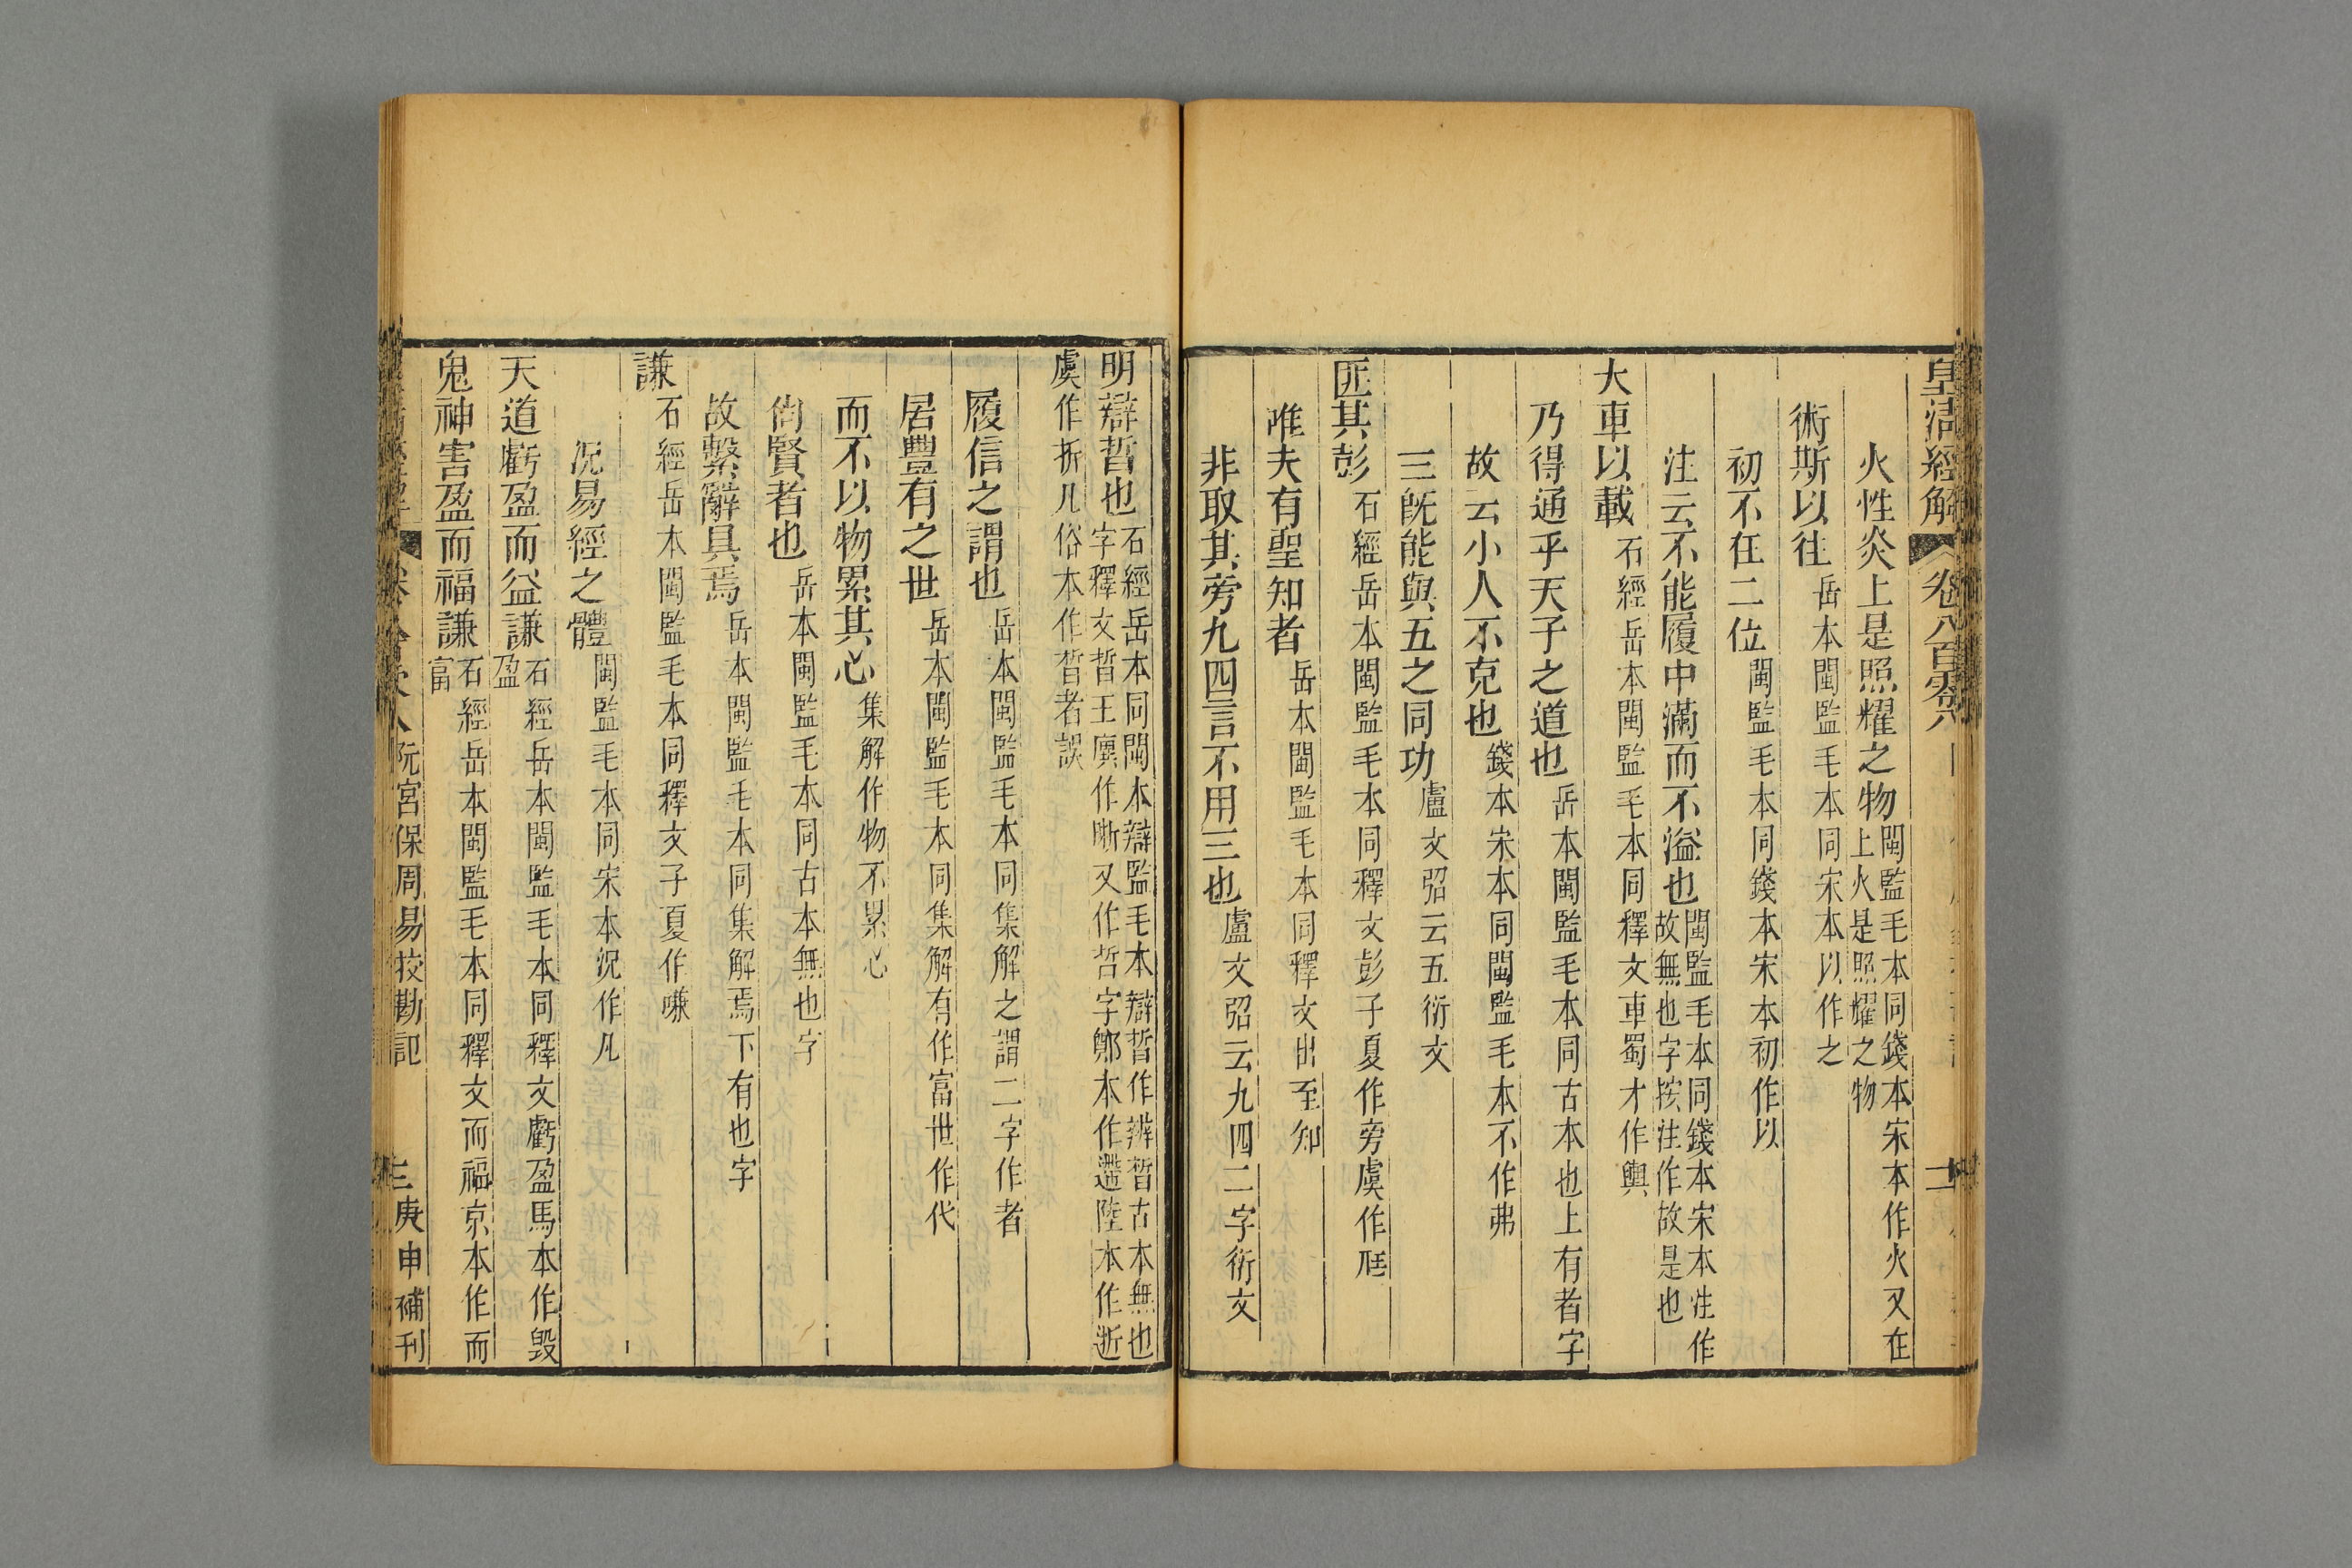 皇清經解 卷八百零八 二
火性炎上是照耀之物閩監毛本同錢本宋本作火又在上火是照耀之物
術斯以往岳本閩監毛本同宋本以作之
初不在二位閩監毛本同錢本宋本初作以
注云不能履中滿而不溢也閩監毛本同錢本宋本注作故無也字按注作故是也
大車以載石經岳本閩監毛本同釋文車蜀才作輿
乃得通乎天子之道也岳本閩監毛本同古本也上有者字
故云小人不克也錢本宋本同閩監毛本不作弗
三旣能與五之同功盧文弨云五衍文
匪其彭石經岳本閩監毛本同釋文彭子夏作旁虞作尫
唯夫有聖知者岳本閩監毛本同釋文出至知
非取其旁九四言不用三也盧文弨云九四二字衍文
明辯晳也石經岳本同閩本辯監毛本辯晳作辨晳古本無也字釋文晳王廙作晣又作哲字鄭本作遰陸本作逝
虞作折凡俗本作晳者誤
履信之謂也岳本閩監毛本同集解之謂二字作者
居豐有之世岳本閩監毛本同集解有作富世作代
而不以物累其心集解作物不累心
尙賢者也岳本閩監毛本同古本無也字
故繫辭具焉岳本閩監毛本同集解焉下有也字
謙石經岳本閩監毛本同釋文子夏作嗛
况易經之體閩監毛本同宋本況作凡
天道虧盈而益謙石經岳本閩監毛本同釋文虧盈馬本作毀盈
鬼神害盈而福謙石經岳本閩監毛本同釋文而福京本作而富
阮宮保周易挍勘記 三 庚申補刊